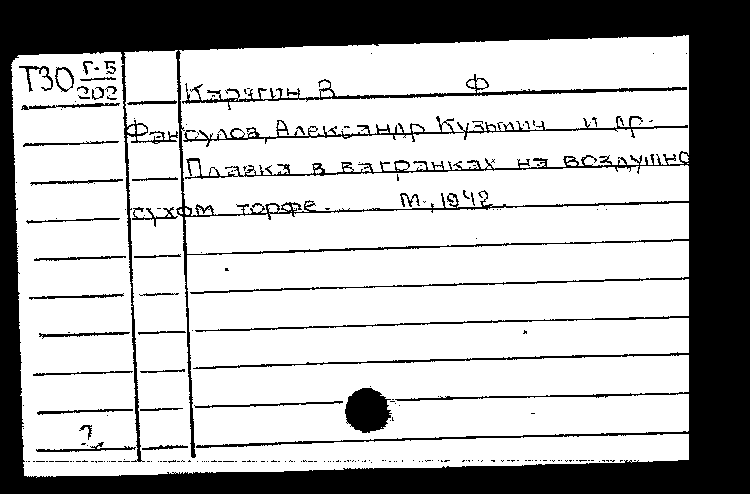 Т30 Г-5
202
Карягин, В Ф
Фансулов, Александр Кузьмич и др.
Плавка в вагранках на воздушно
сухом торфе. М., 1942.
2